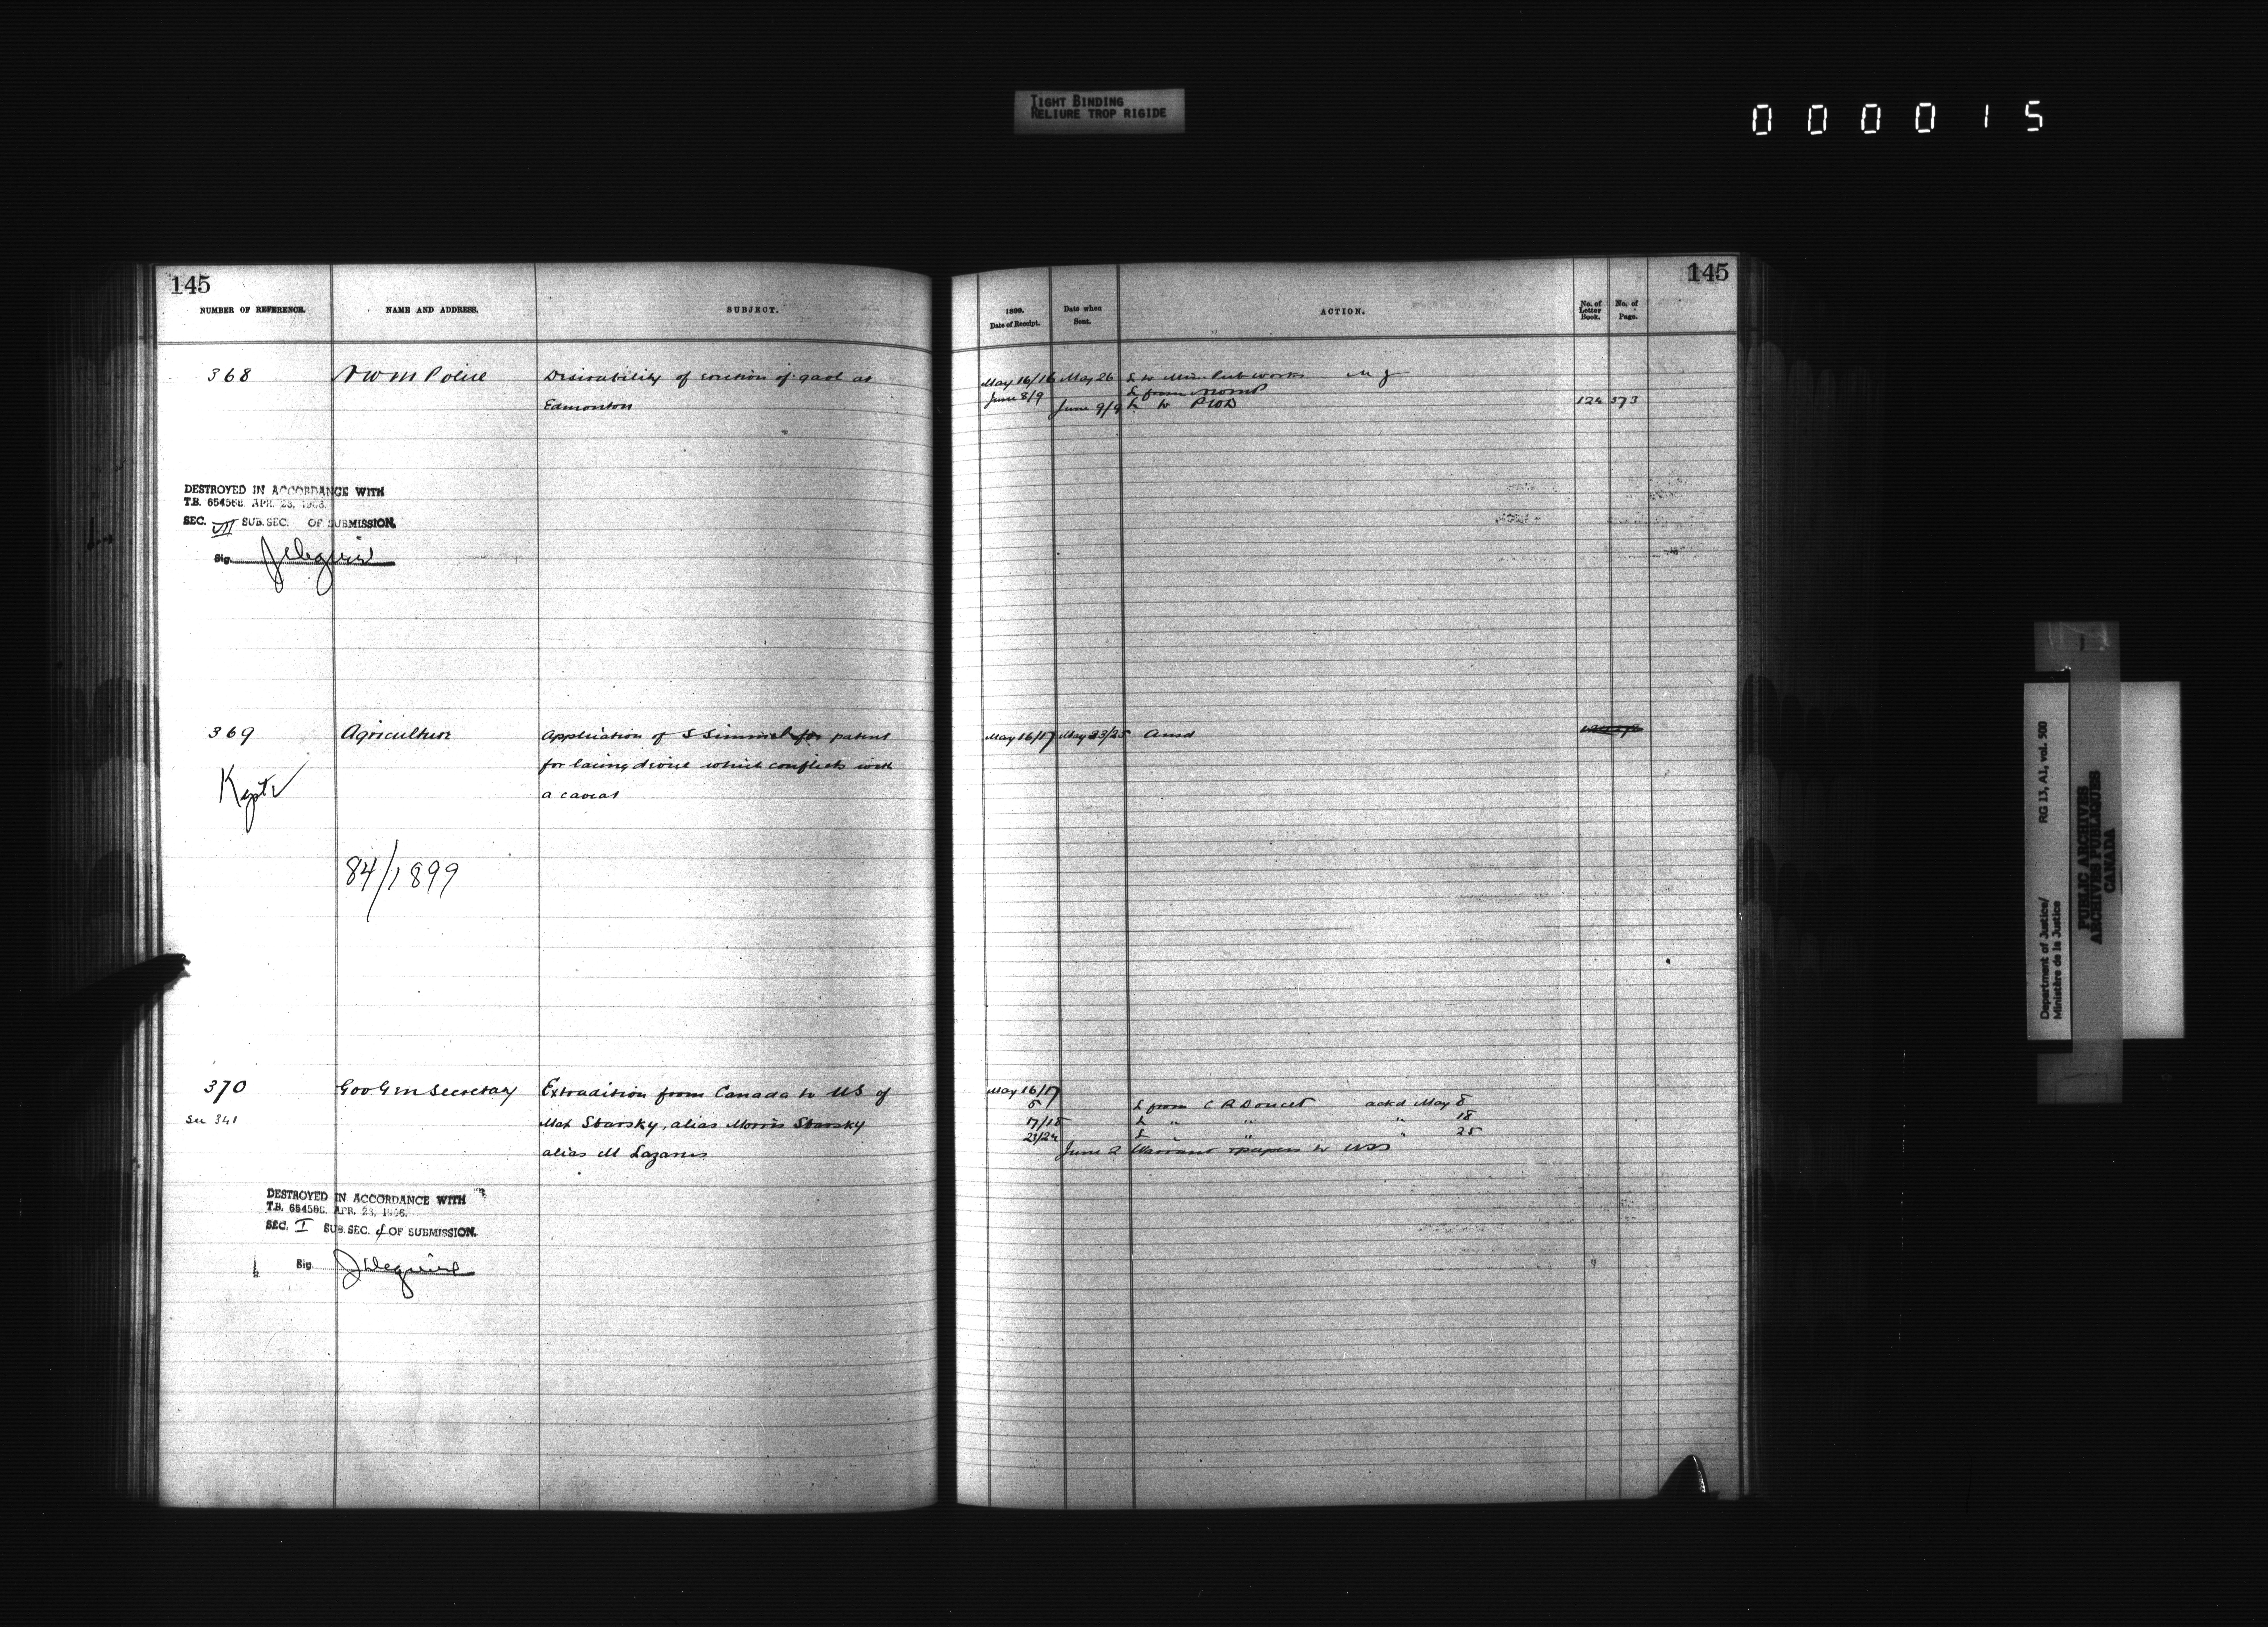 TIGHT BINDING
RELIURE TROP RIGIDE
000015
145
NUMBER OF REFERENCE. NAME AND ADDRESS. SUBJECT.
368 NWM Police Desirability of erection of gaol at
Edmonton
DESTROYED IN ACCORDANCE WITH
T.B. 654568 APR. 23, 1966.
SEC. VII SUB. SEC. OF SUBMISSION.
Sig.
369 Agriculture Application of S Simmel for patent
for lacing device which conflicts with
a caveat
Kept
84/1899
370 Gov Gen Secretary Extradition from Canada to US of
See 341 Max Sbarsky, alias Morris Sbarsky
alias M Lazarus
DESTROYED IN ACCORDANCE WITH
T.B. 654568 APR. 23, 1966.
SEC. I SUB. SEC. 4 OF SUBMISSION.
Sig.
145
1899. Date of Receipt. Date when Sent. ACTION. No. of Letter Book. No. of Page.
May 16/16 May 26 L to Min Pub works
June 8/9 L from NWMP
June 9/9 L to PWD 124 373
May 16/17 May 23/25 Ansd
May 16/17
5 L from C R Doucet ackd May 8
17/18 L " " " 18
23/24 L " " " 25
June 2 Warrant papers to
Department of Justice/ RG 13, A1, vol. 500
Ministère de la Justice
PUBLIC ARCHIVES
ARCHIVES PUBLIQUES
CANADA